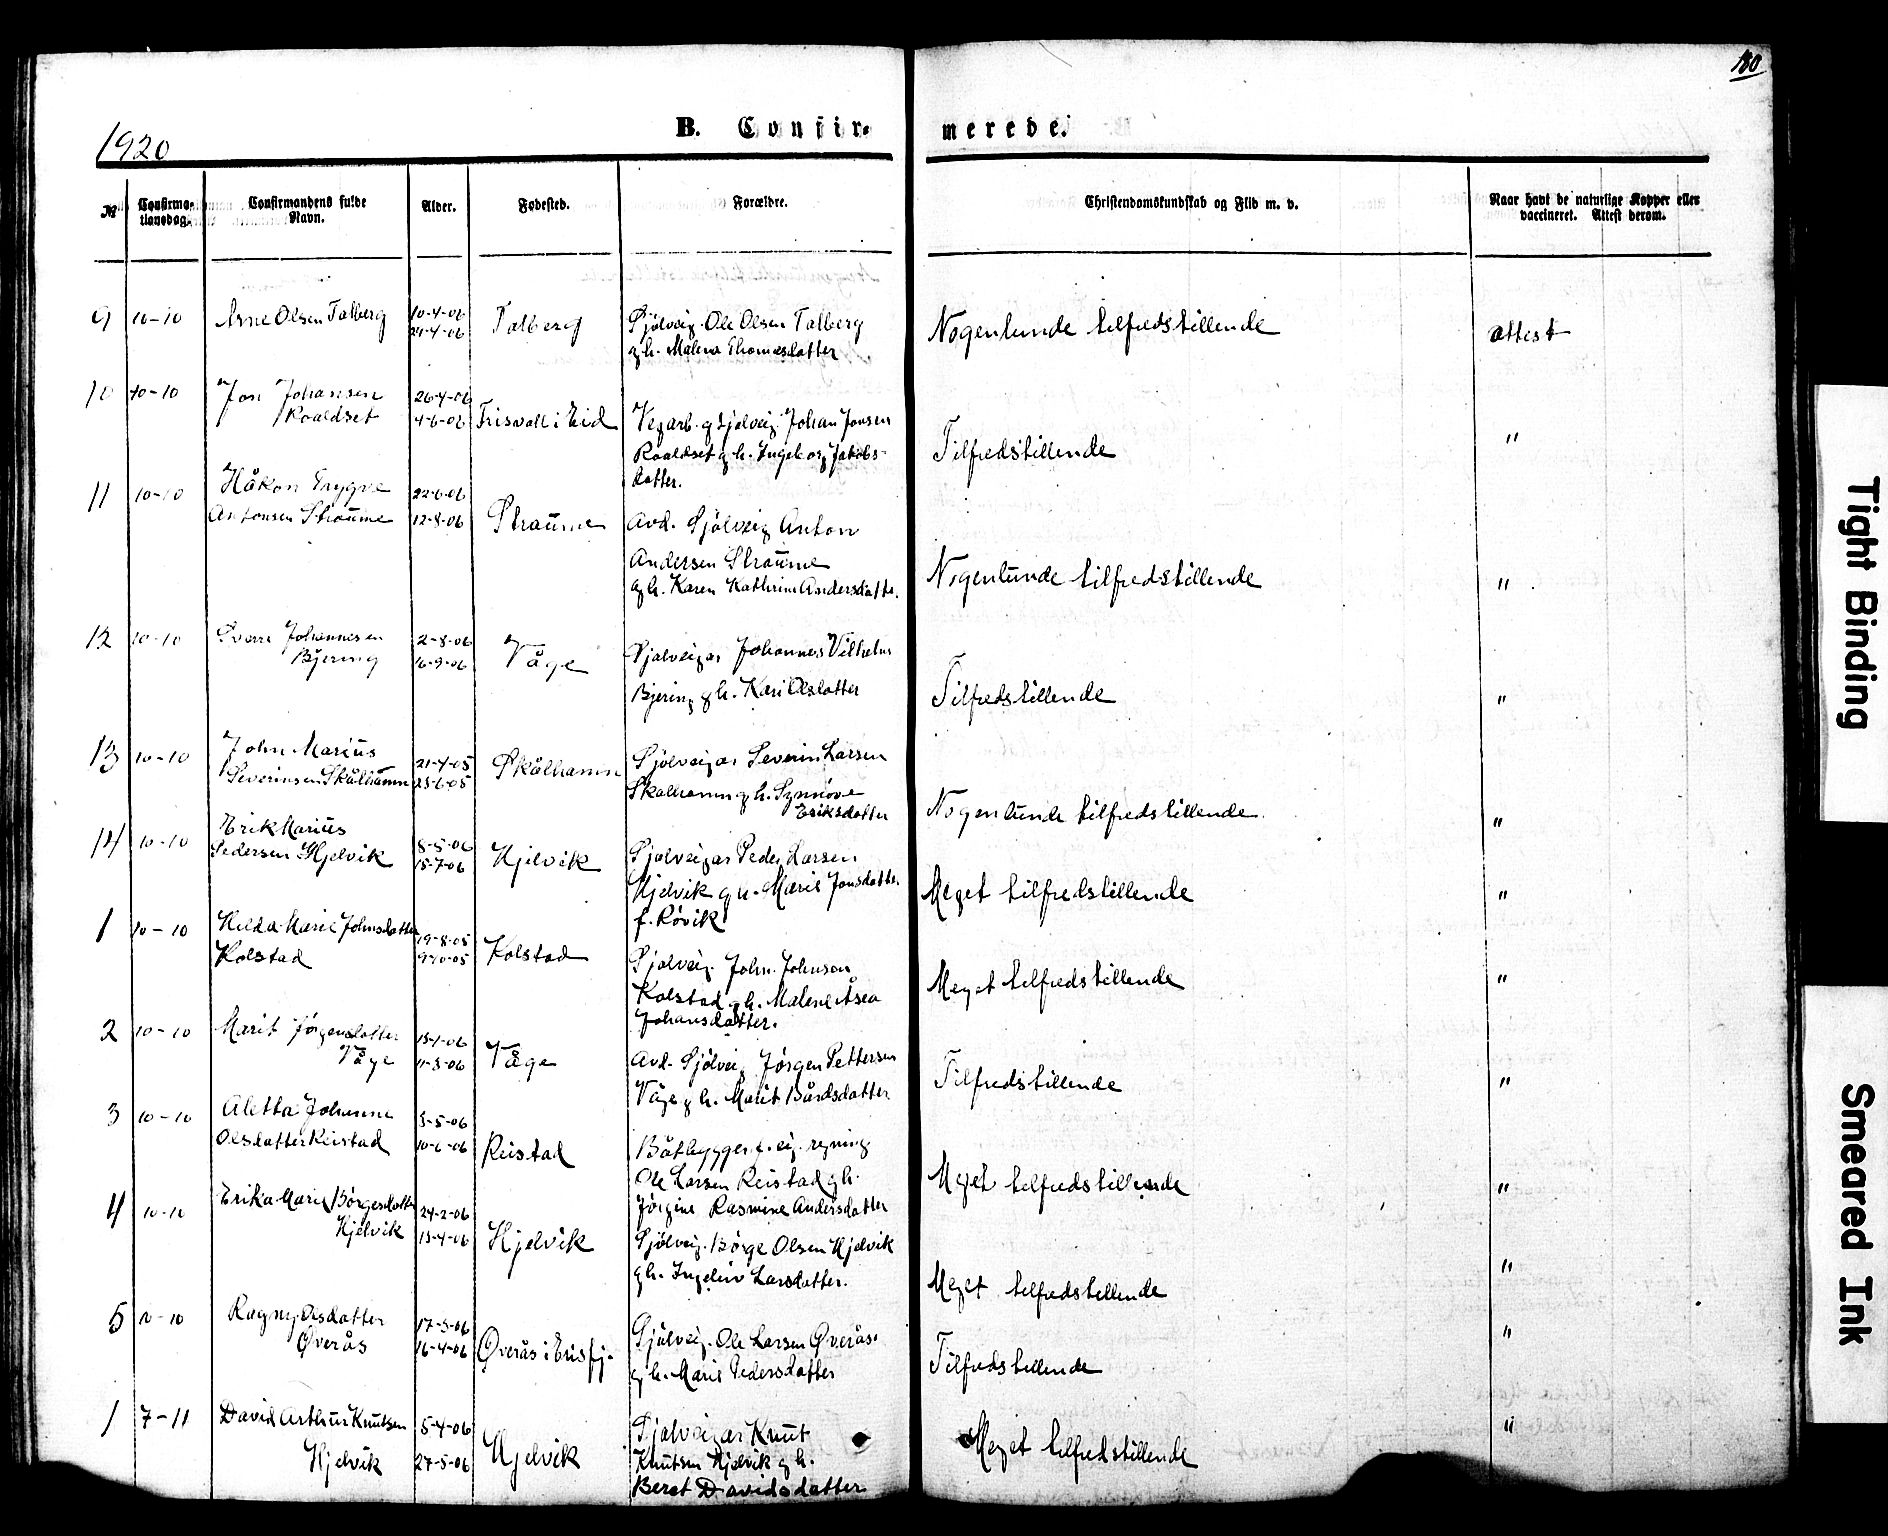 180
1920
B. Confir-
merede.
№
Confirma-
tionsdag.
Confirmandens fulde
Navn.
Alder.
Fødested.
Forældre.
Christendomskundskab og Flid m. v.
Naar havt de naturlige Kopper eller
vaccineret. Attest derom.
9 10-10 Arne Olsen Talberg 10-4-06 Talberg Sjølveig. Ole Olsen Talberg Nogenlunde tilfredstillende attest
24-4-06 g h. Malena Thomasdatter
10 10-10 Jon Johansen 26-4-06
Roaldset 4-6-06 Frisvoll i Eid Vegarb. g sjølveig. Johan Jonsen Tilfredstillende "
Roaldset g h. Ingeborg Jakobs-
datter.
11 10-10 Håkon Trygve 22-6-06
Antonsen Straume 12-8-06 Straume Avd. Sjölveig Anton
Andersen Straume Nogenlunde tilfredstillende "
g h. Karen Kathrine Andersdatter.
12 10-10 Sverre Johannesen 2-8-06
Bjering 16-9-06 Våge Sjølveigar Johannes Vilhelm
Bjering g h. Kari Olsdatter Tilfredstillende "
13 10-10 John Marius 21-4-05 Skålhamn Sjölveigar Severin Larsen
Severinsen Skålhamn 25-6-05 Skalhamn g h. Synnöve
Eriksdatter Nogenlunde tilfredstillende "
14 10-10 Erik Marius 8-5-06
Pedersen Hjelvik 15-7-06 Hjelvik Sjølveigar Peder Larsen
Hjelvik g h. Marie Jonsdatter Meget tilfredstillende "
f. Rövik
1 10-10 Hilda Marie Johnsdatter 19-8-05
Kolstad 9-10-05 Kolstad Sjølveig. John Johnson
Kolstad g h. Malene Åsea Meget tilfredstillende "
Johansdatter.
2 10-10 Marit Jørgensdatter 15-1-06
Våge 11-3-06 Våge Avd. Sjølveig Jørgen Pettersen Tilfredstillende "
Våge g h. Marit Bårdsdatter
3 10-10 Aletta Johanne 3-5-06
Olsdatter Reistad 10-6-06 Reistad Båtbygger f. eig. regning
Ole Larsen Reistad g h. Meget tilfredstillende "
Jørgine Rasmine Andersdatter
4 10-10 Erika Marie Börgesdatter 24-2-06
Hjelvik 15-4-06 Hjelvik Sjølveig. Børge Olsen Hjelvik
g h. Ingeleiv Larsdatter. Meget tilfredstillende "
5 10-10 Ragny Olsdatter 17-3-06
Øverås 16-4-06 Øverås i Eirisfj. Sjølveig. Ole Larsen Øverås Tilfredstillende "
g h. Marie Pedersdatter
1 7-11 David Arthur Knutsen 5-4-06 Sjølveigar Knut "
Hjelvik 27-5-06 Hjelvik Knutsen Hjelvik g h. Meget tilfredstillende
Beret Davidsdatter
Tight Binding
Smeared Ink